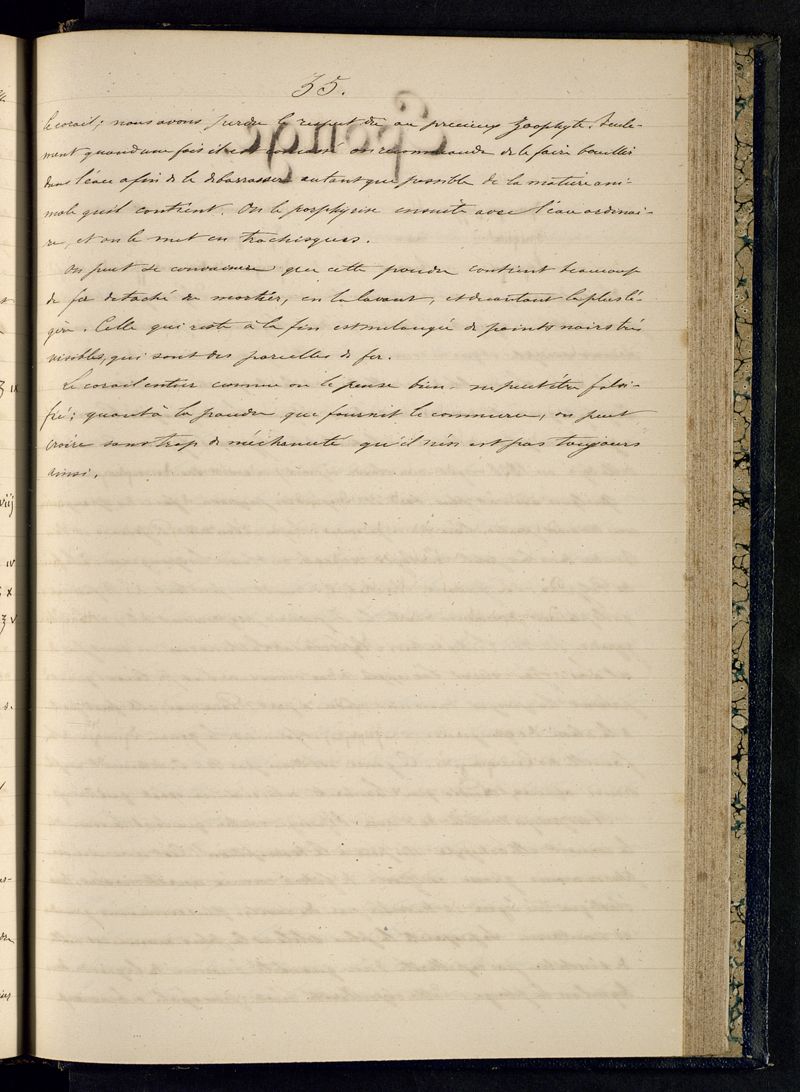 35.
le corail; nous avons perdu le respect dû au precieux Zoophyte. Seule-
ment quand une fois il est concassé on recommande de le faire bouillir
dans l'eau afin de le debarrasser autant que possible de la matiere ani-
male qu'il contient. On le porphyrise ensuite avec l'eau ordinai-
re, et on le met en trochisques.
On peut se convaincre que cette poudre contient beaucoup
de fer detaché du mortier, en la lavant, et decantant la plus lé-
gère. Celle qui reste à la fin est melangée de points noirs très
visibles, qui sont des parcelles de fer.
Le corail entier comme on le pense bien, ne peut être falsi-
fié; quant à la poudre que fournit le commerce, on peut
croire sans trop de méchanceté qu'il n'en est pas toujours
ainsi.